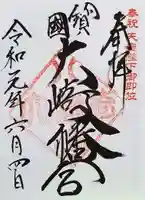 奉祝 天皇陛下御即位
奉拝
國
大崎八幡宮
令和元年六月四日